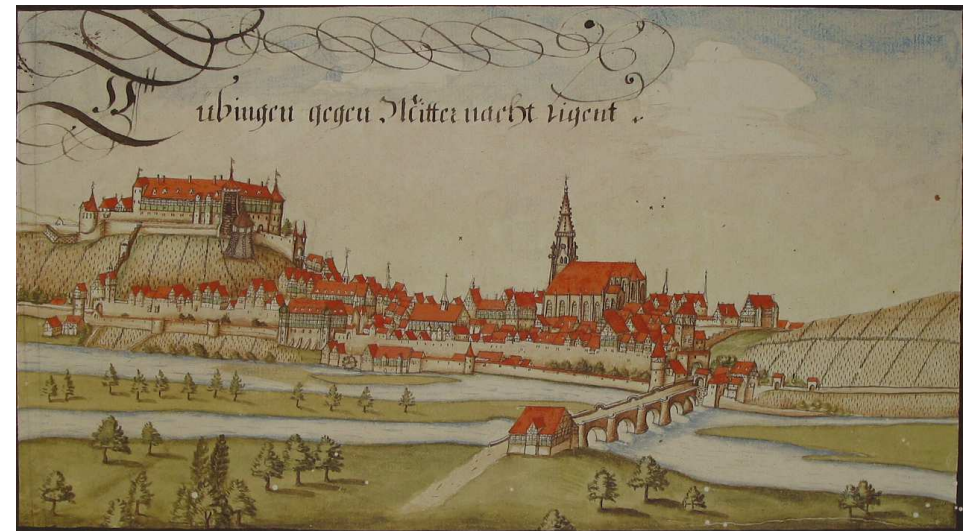 Tübingen gegen Mitternacht ligent